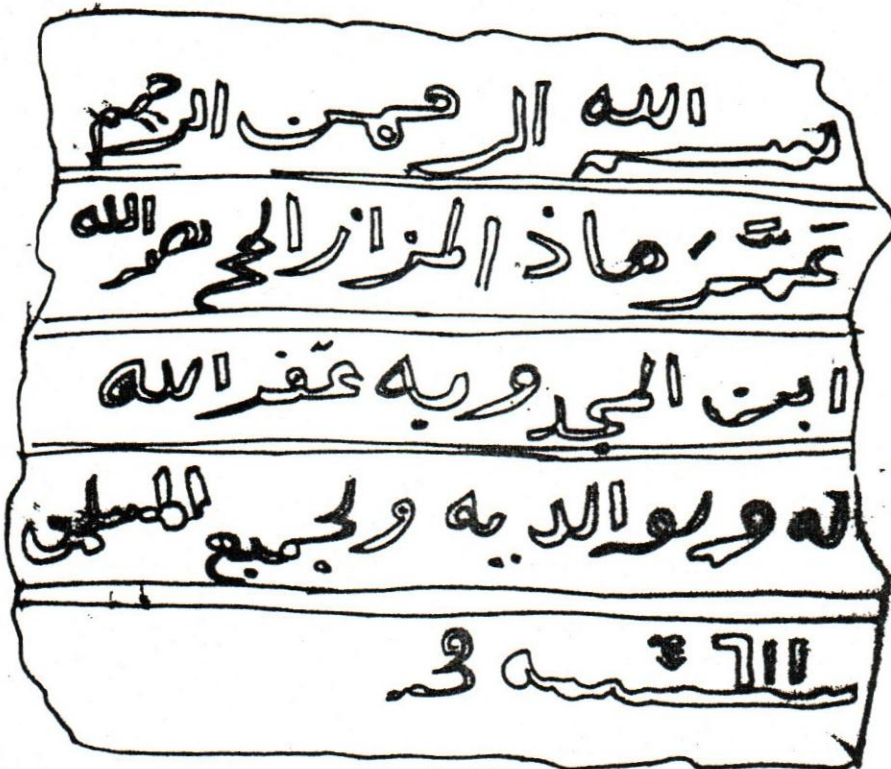 بسم الله الرحمن الرحيم
عمّر هاذ المزار الحج نصر الله
ابن المجدويه غفر الله
له ولوالديه ولجميع المسلمين
في سنه ٦١١